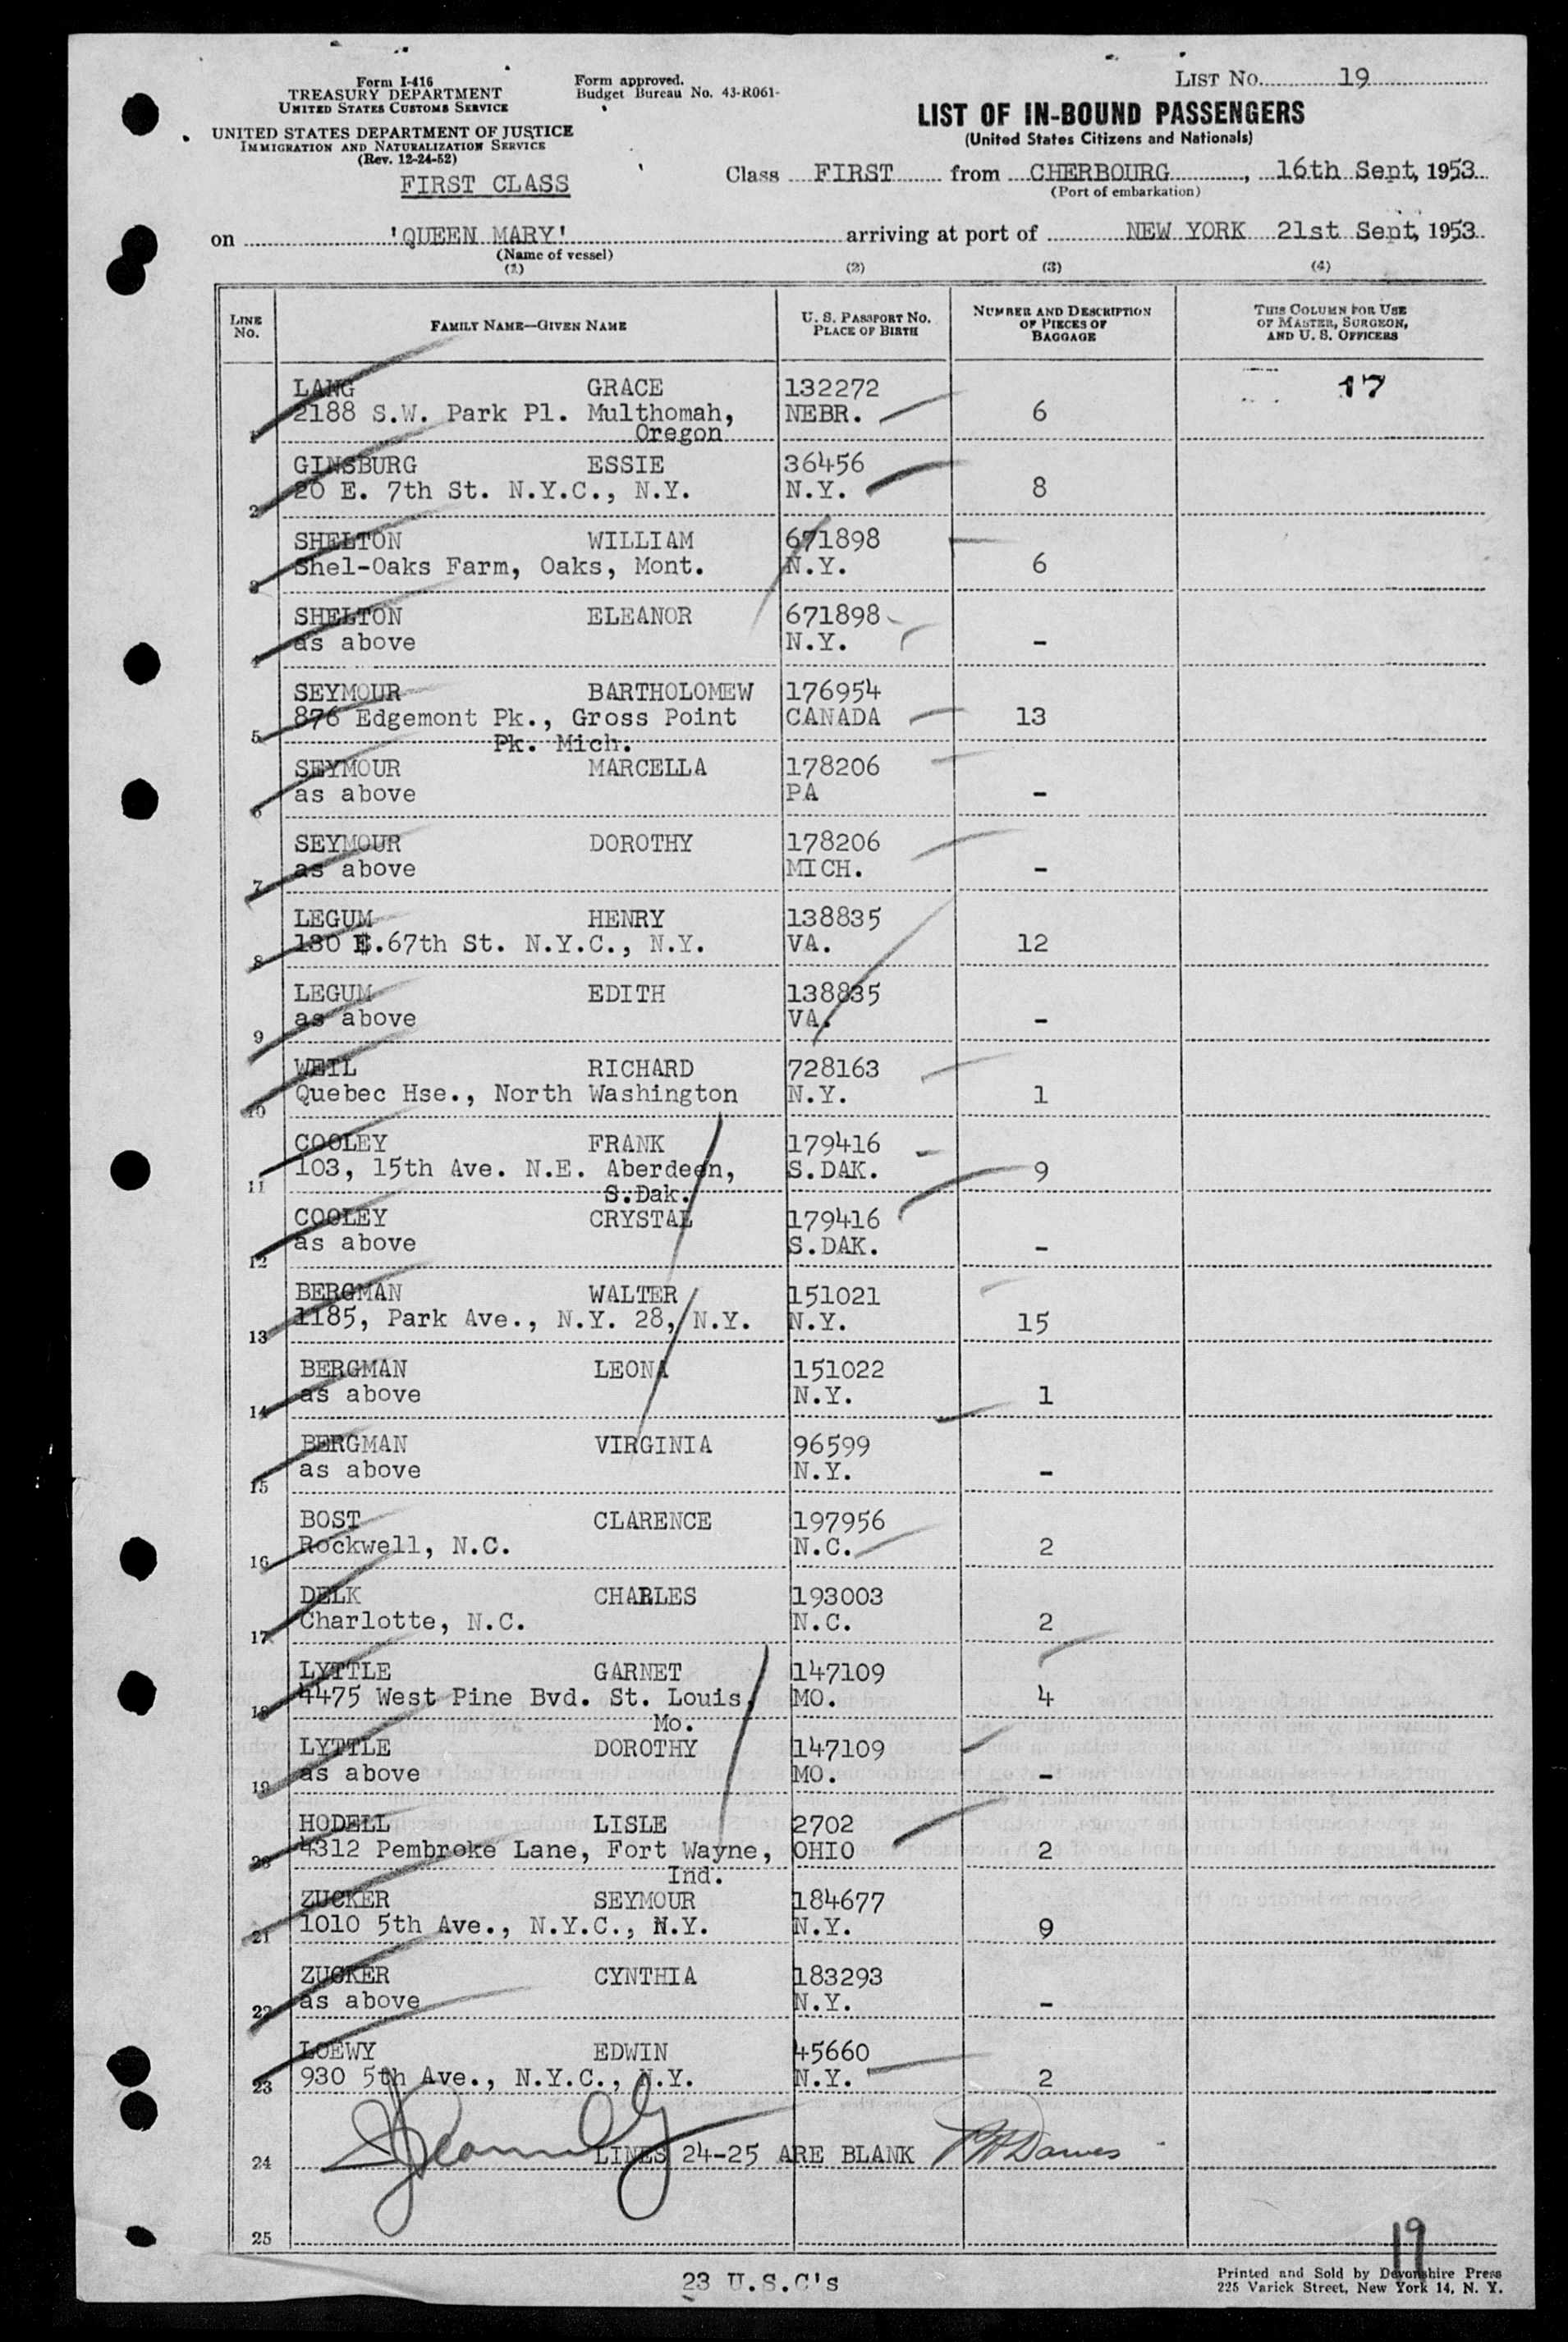 Form I-416
TREASURY DEPARTMENT
UNITED STATES CUSTOMS SERVICE
UNITED STATES DEPARTMENT OF JUSTICE
IMMIGRATION AND NATURALIZATION SERVICE
(Rev. 12-24-52)
FIRST CLASS
Form approved.
Budget Bureau No. 43-R061-
LIST No. 19
LIST OF IN-BOUND PASSENGERS
(United States Citizens and Nationals)
Class FIRST from CHERBOURG, 16th Sept, 1953
(Port of embarkation)
on 'QUEEN MARY' arriving at port of NEW YORK 21st Sept, 1953
(Name of vessel)
(1) (2) (3) (4)
LINE No. FAMILY NAME—GIVEN NAME U. S. PASSPORT No. PLACE OF BIRTH NUMBER AND DESCRIPTION OF PIECES OF BAGGAGE THIS COLUMN FOR USE OF MASTER, SURGEON, AND U. S. OFFICERS
LANG GRACE 132272 17
1 2188 S.W. Park Pl. Multhomah, NEBR. 6
Oregon
GINSBURG ESSIE 36456
2 20 E. 7th St. N.Y.C., N.Y. N.Y. 8
SHELTON WILLIAM 671898
3 Shel-Oaks Farm, Oaks, Mont. N.Y. 6
SHELTON ELEANOR 671898
4 as above N.Y. -
SEYMOUR BARTHOLOMEW 176954
5 876 Edgemont Pk., Gross Point CANADA 13
Pk. Mich.
SEYMOUR MARCELLA 178206
6 as above PA -
SEYMOUR DOROTHY 178206
7 as above MICH. -
LEGUM HENRY 138835
8 180 E.67th St. N.Y.C., N.Y. VA. 12
LEGUM EDITH 138835
9 as above VA. -
WEIL RICHARD 728163
10 Quebec Hse., North Washington N.Y. 1
COOLEY FRANK 179416
11 103, 15th Ave. N.E. Aberdeen, S.DAK. 9
S.Dak.
COOLEY CRYSTAL 179416
12 as above S.DAK. -
BERGMAN WALTER 151021
13 1185, Park Ave., N.Y. 28, N.Y. N.Y. 15
BERGMAN LEONA 151022
14 as above N.Y. 1
BERGMAN VIRGINIA 96599
15 as above N.Y. -
BOST CLARENCE 197956
16 Rockwell, N.C. N.C. 2
DELK CHARLES 193003
17 Charlotte, N.C. N.C. 2
LYTTLE GARNET 147109
18 4475 West Pine Bvd. St. Louis, MO. 4
Mo.
LYTTLE DOROTHY 147109
19 as above MO. -
HODELL LISLE 2702
20 4312 Pembroke Lane, Fort Wayne, OHIO 2
Ind.
ZUCKER SEYMOUR 184677
21 1010 5th Ave., N.Y.C., N.Y. N.Y. 9
ZUCKER CYNTHIA 183293
22 as above N.Y. -
LOEWY EDWIN 45660
23 930 5th Ave., N.Y.C., N.Y. N.Y. 2
24 LINES 24-25 ARE BLANK
25
19
23 U.S.C's
Printed and Sold by Devonshire Press
225 Varick Street, New York 14, N. Y.